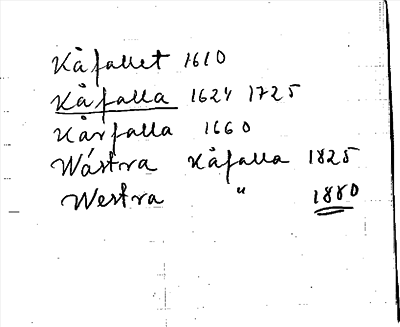 Kåfallet 1610
Kåfalla 1624 1725
Kårfalla 1660
Wástra Kåfalla 1825
Westra " 1880